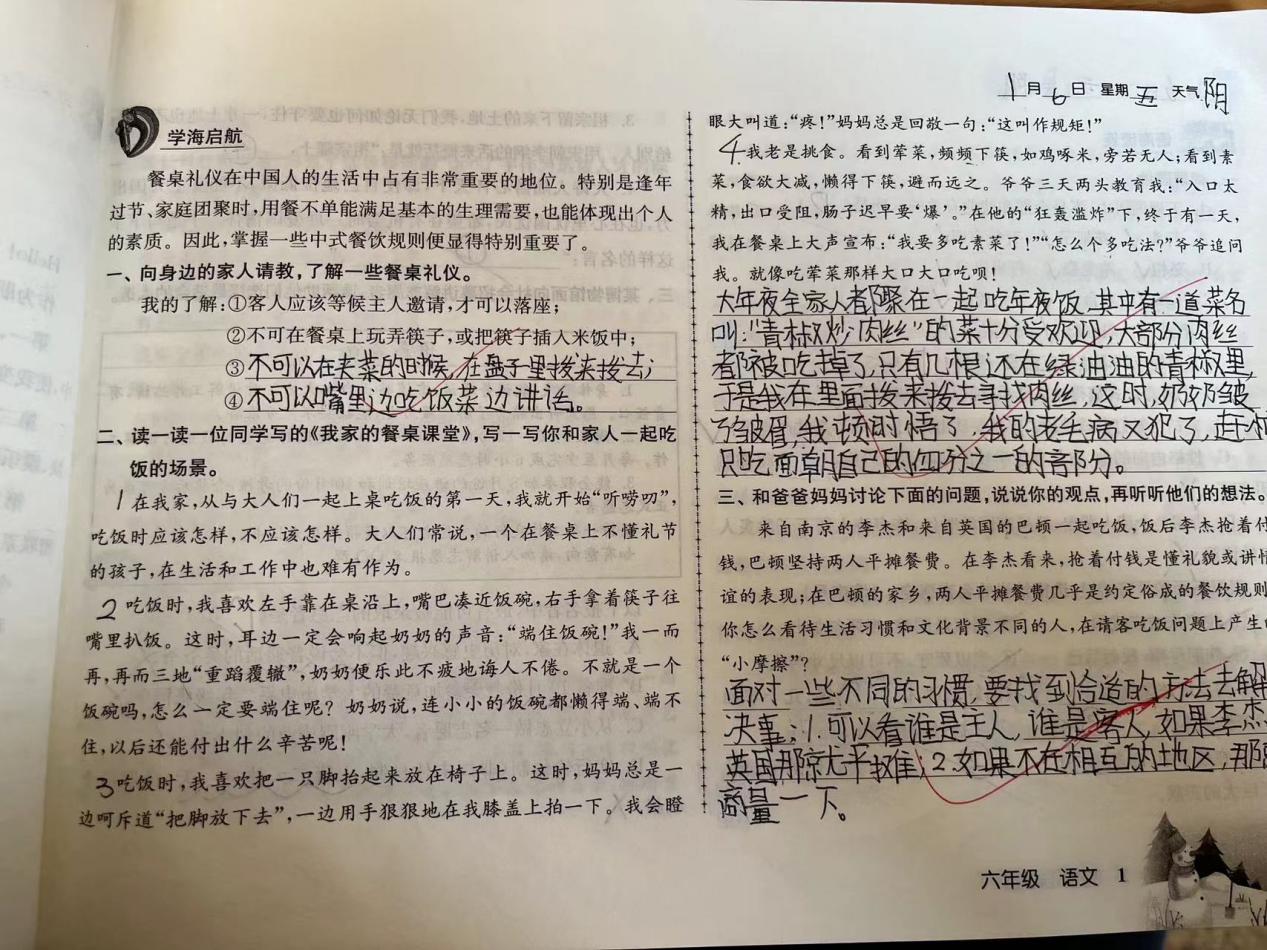 1月6日 星期五 天气阴
学海启航
餐桌礼仪在中国人的生活中占有非常重要的地位。特别是逢年
过节、家庭团聚时，用餐不单能满足基本的生理需要，也能体现出个人
的素质。因此，掌握一些中式餐饮规则便显得特别重要了。
一、向身边的家人请教，了解一些餐桌礼仪。
我的了解：①客人应该等候主人邀请，才可以落座；
②不可在餐桌上玩弄筷子，或把筷子插入米饭中；
③不可以在夹菜的时候，在盘子里拨来拨去；
④不可以嘴里边吃饭菜边讲话。
二、读一读一位同学写的《我家的餐桌课堂》，写一写你和家人一起吃
饭的场景。
1在我家，从与大人们一起上桌吃饭的第一天，我就开始“听唠叨”，
吃饭时应该怎样，不应该怎样。大人们常说，一个在餐桌上不懂礼节
的孩子，在生活和工作中也难有作为。
2吃饭时，我喜欢左手靠在桌沿上，嘴巴凑近饭碗，右手拿着筷子往
嘴里扒饭。这时，耳边一定会响起奶奶的声音：“端住饭碗！”我一而
再，再而三地“重蹈覆辙”，奶奶便乐此不疲地诲人不倦。不就是一个
饭碗吗，怎么一定要端住呢？奶奶说，连小小的饭碗都懒得端、端不
住，以后还能付出什么辛苦呢！
3吃饭时，我喜欢把一只脚抬起来放在椅子上。这时，妈妈总是一
边呵斥道“把脚放下去”，一边用手狠狠地在我膝盖上拍一下。我会瞪
眼大叫道：“疼！”妈妈总是回敬一句：“这叫作规矩！”
4我老是挑食。看到荤菜，频频下筷，如鸡啄米，旁若无人；看到素
菜，食欲大减，懒得下筷，避而远之。爷爷三天两头教育我：“入口太
精，出口受阻，肠子迟早要‘爆’。”在他的“狂轰滥炸”下，终于有一天，
我在餐桌上大声宣布：“我要多吃素菜了！”“怎么个多吃法？”爷爷追问
我。就像吃荤菜那样大口大口吃呗！
大年夜全家人都聚在一起吃年夜饭，其中有一道菜名
叫：“青椒炒肉丝”的菜十分受欢迎，大部分肉丝
都被吃掉了，只有几根还在绿油油的青椒里，
于是我在里面拨来拨去寻找肉丝，这时，奶奶皱
了皱眉，我顿时悟了，我的老毛病又犯了，赶
只吃面朝自己的四分之一的部分。
三、和爸爸妈妈讨论下面的问题，说说你的观点，再听听他们的想法。
来自南京的李杰和来自英国的巴顿一起吃饭，饭后李杰抢着付
钱，巴顿坚持两人平摊餐费。在李杰看来，抢着付钱是懂礼貌或讲情
谊的表现；在巴顿的家乡，两人平摊餐费几乎是约定俗成的餐饮规则
你怎么看待生活习惯和文化背景不同的人，在请客吃饭问题上产生的
“小摩擦”？
面对一些不同的习惯，要找到恰道的方法去解
决事；1.可以看谁是主人，谁是客人，如果李杰
英国那就平摊；2.如果不在相互的地区，那
商量一下。
六年级 语文 1